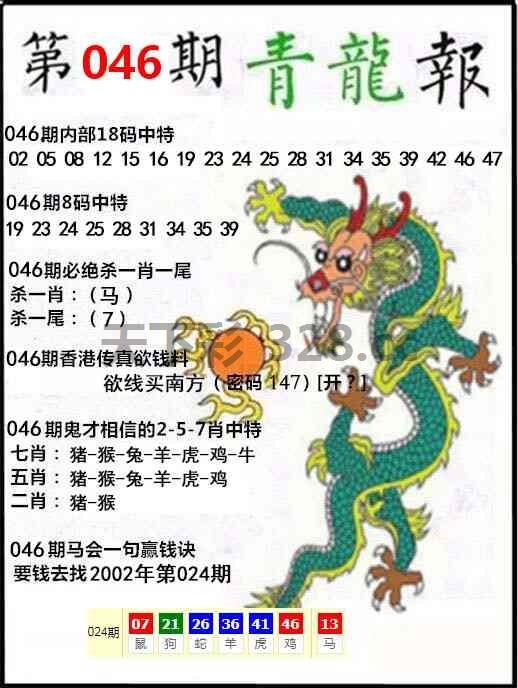 第 046 期 青龍報
046期内部18码中特
02 05 08 12 15 16 19 23 24 25 28 31 34 35 39 42 46 47
046期8码中特
19 23 24 25 28 31 34 35 39
046期必绝杀一肖一尾
杀一肖：（马）
杀一尾：（7）
046期香港传真欲钱料
欲线买南方（密码 147）[开？]
046期鬼才相信的2-5-7肖中特
七肖：猪-猴-兔-羊-虎-鸡-牛
五肖：猪-猴-兔-羊-虎-鸡
二肖：猪-猴
046期马会一句赢钱诀
要钱去找2002年第024期
024期 07 21 26 36 41 46 13
鼠 狗 蛇 羊 虎 鸡 马